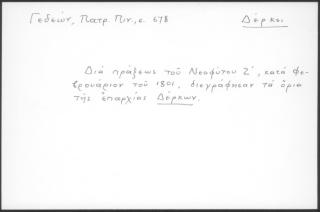 Γεδεών, Πατρ. Πιν., σ. 678
Δέρκοι
Διά πράξεως τοῦ Νεοφύτου Ζ΄, κατά Φε-
βρουάριον τοῦ 1801, διεγράφησαν τά ὅρια
τῆς ἐπαρχίας Δέρκων.